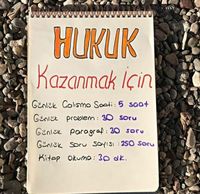 HUKUK
Kazanmak için
Günlük Çalışma Saati: 5 saat
Günlük problem: 30 soru
Günlük paragraf: 30 soru
Günlük soru sayısı: 250 soru
Kitap okuma: 30 dk.